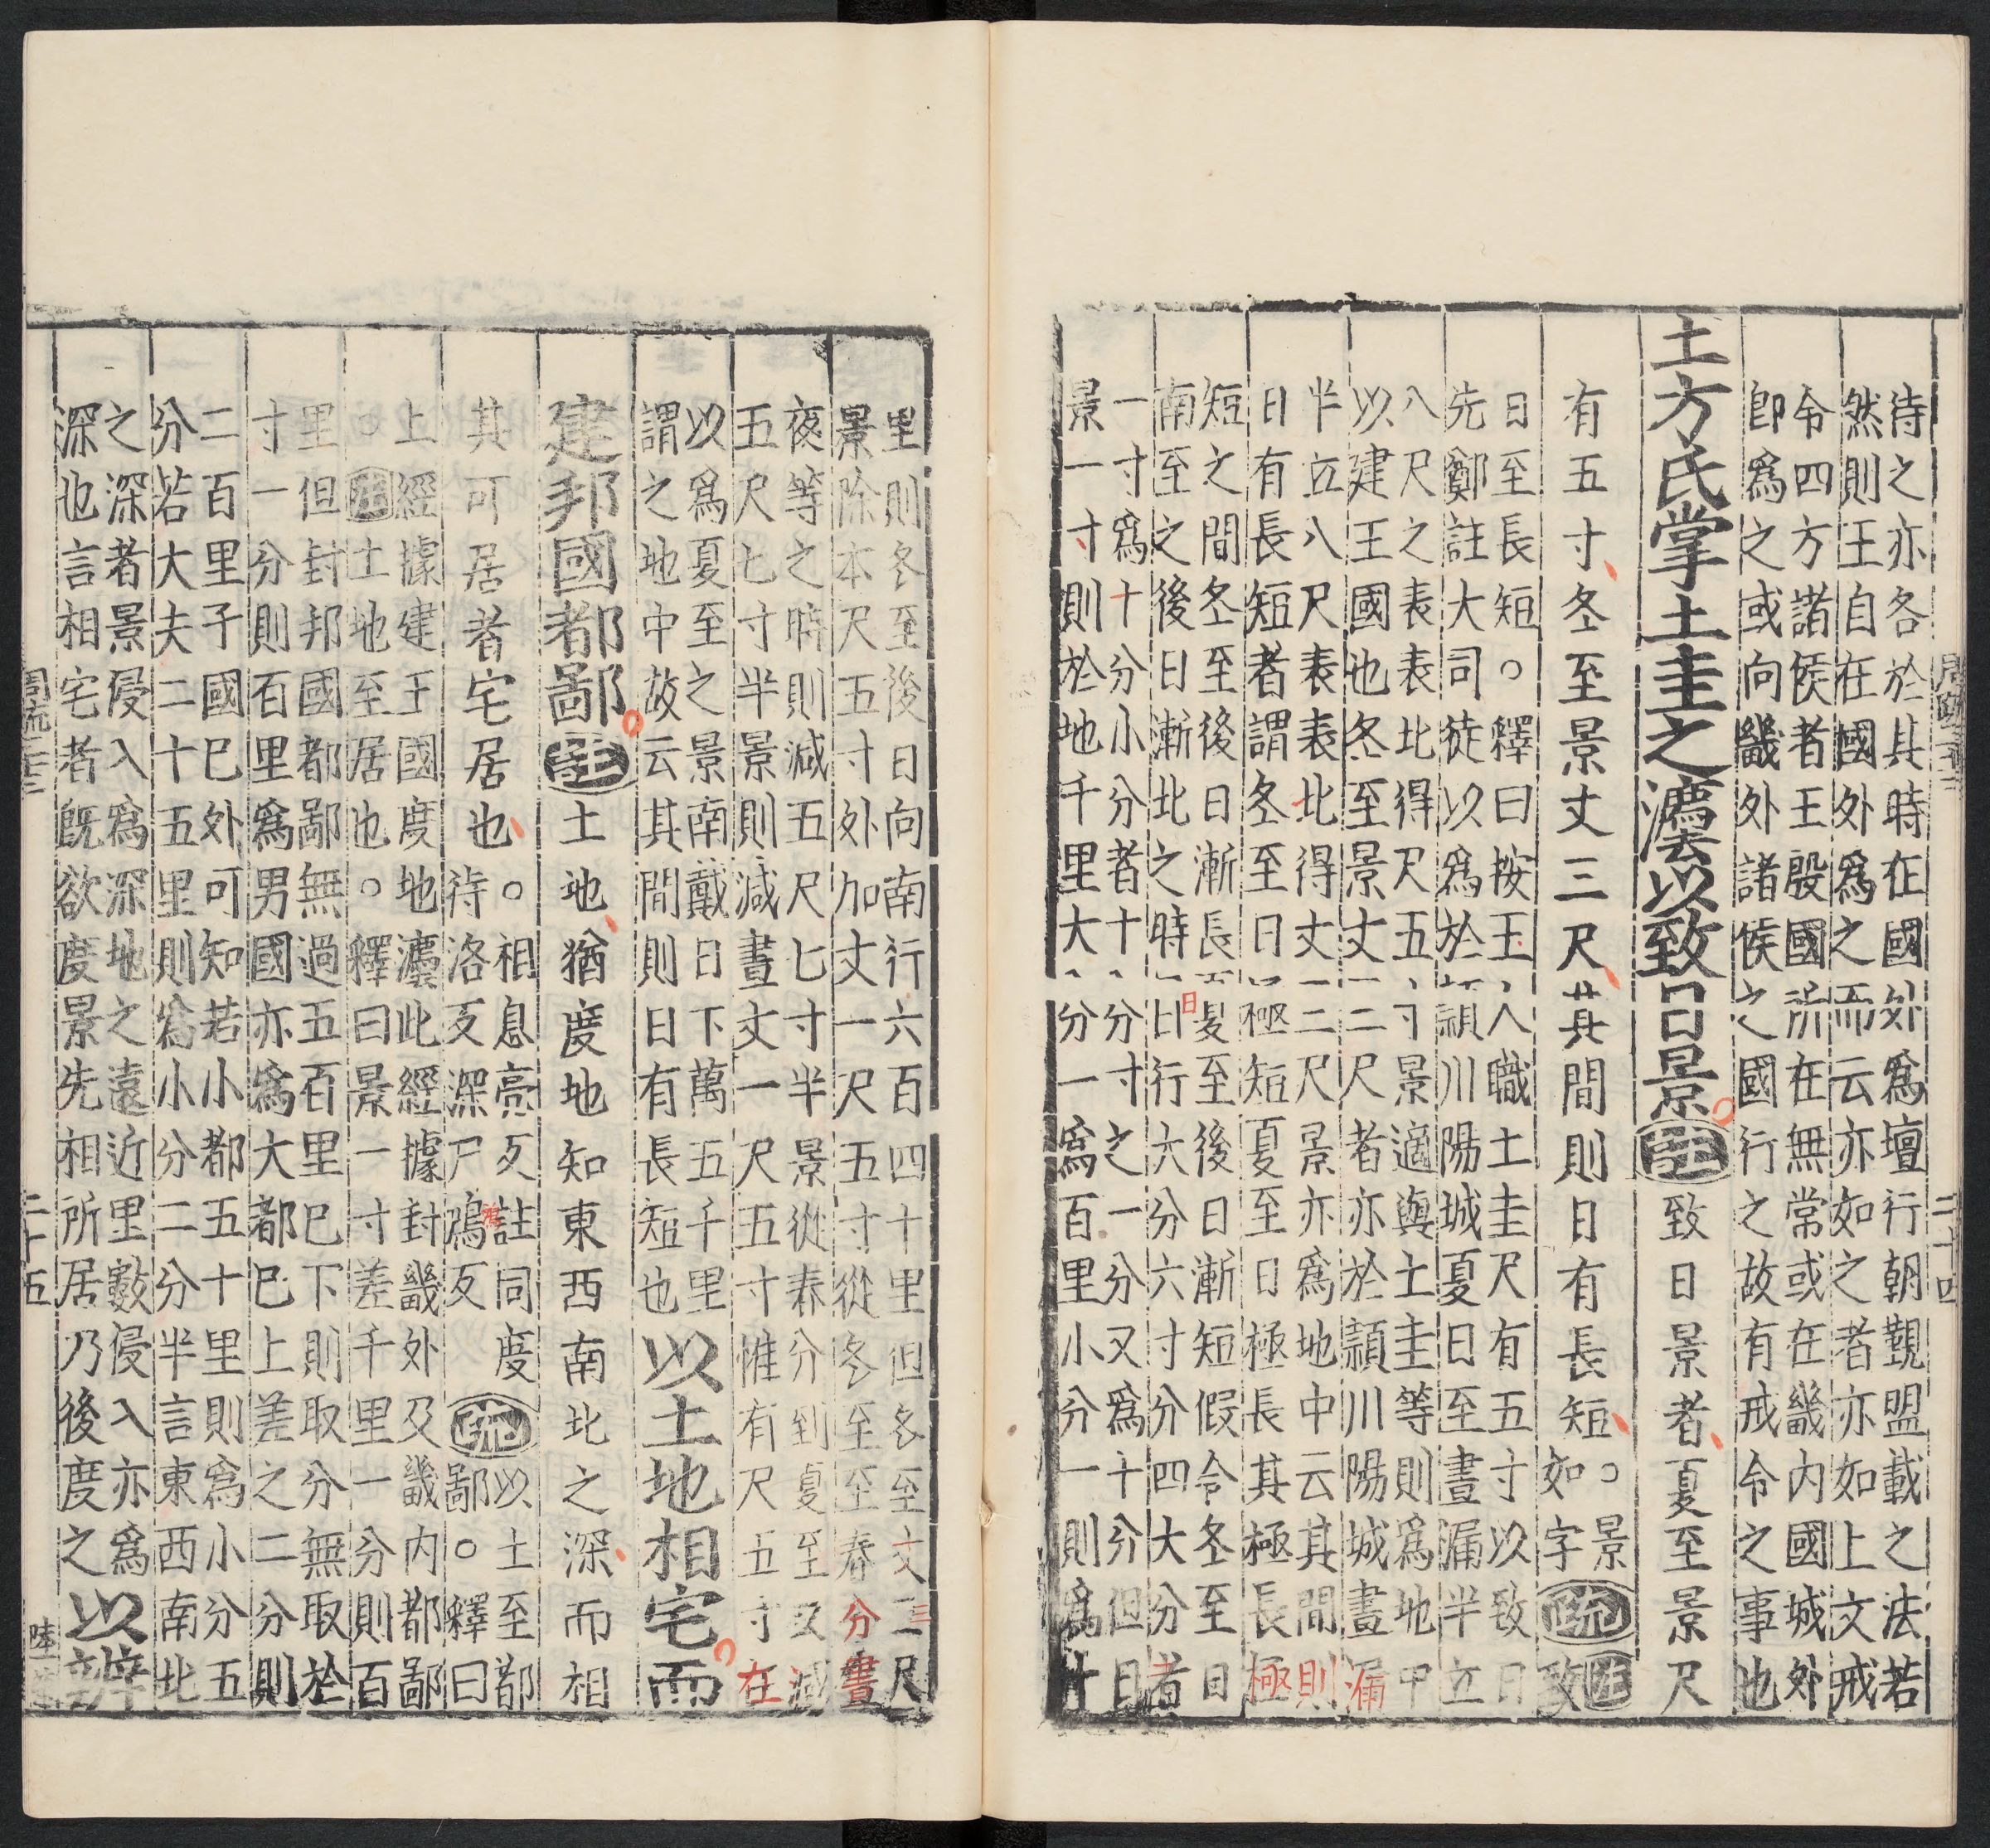 待之亦各於其時在國外爲壇行朝覲盟載之法若
然則王自在國外爲之而云亦如之者亦如上文戒
令四方諸侯者王殷國所在無常或在畿內國城外
即爲之或向畿外諸侯之國行之故有戒令之事也
土方氏掌土圭之灋以致日景。註致日景者夏至景尺
有五寸冬至景丈三尺其間則日有長短○景如字疏註致
日至長短○釋曰按玉人職土圭尺有五寸以致日
先鄭註大司徒以爲於潁川陽城夏日至晝漏半立
八尺之表表北得尺五寸景適與土圭等則爲地中
以建王國也冬至景丈三尺者亦於潁川陽城晝漏
半立八尺表表北得丈三尺景亦爲地中云其間則
日有長短者謂冬至日極短夏至日極長其極長極
短之間冬至後日漸長夏至後日漸短假令冬至日
南至之後日漸北之時日日行六分六寸分四大分者
一寸爲十分小分者十分寸之一分又爲十分但日
景一寸則於地千里大分一爲百里小分一則爲十
二十四
里則冬至後日向南行六百四十里但冬至丈三尺
景除本尺五寸外加丈一尺五寸從冬至至春分晝
夜等之時則減五尺七寸半景從春分到夏至又減
五尺七寸半景則減晝丈一尺五寸惟有尺五寸在
以爲夏至之景南戴日下萬五千里
謂之地中故云其間則日有長短也以土地相宅而
建邦國都鄙。註土地猶度地知東西南北之深而相
其可居者宅居也○相息亮反註同度待洛反深尸鴆反疏以土至都鄙○釋曰
上經據建王國度地灋此經據封畿外及畿內都鄙
○註土地至居也○釋曰景一寸差千里一分則百
里但封邦國都鄙無過五百里已下則取分無取於
寸一分則百里爲男國亦爲大都已上差之二分則
二百里子國已外可知若小都五十里則爲小分五
分若大夫二十五里則爲小分二分半言東西南北
之深者景侵入爲深地之遠近里數侵入亦爲
深也言相宅者既欲度景先相所居乃後度之以辨
二十五